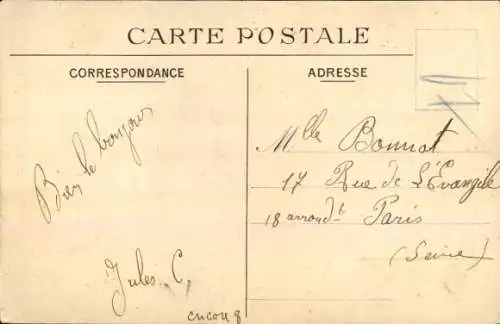 CARTE POSTALE
CORRESPONDANCE
Bien le bonjour
Jules C,
encore 8
ADRESSE
Mlle Bonnot
17 Rue de L'Évangile
18 arrondt Paris
(Seine)